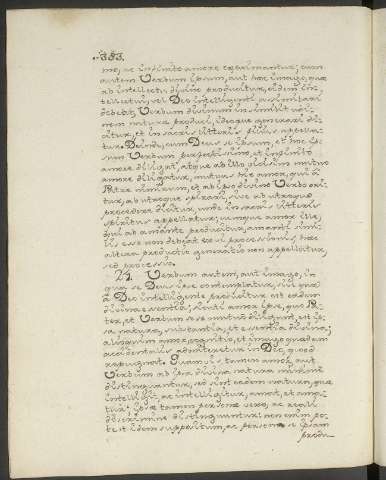 .353.
mo, ac infinito amore exprimantur; cum
autem Verbum ipsum, aut hoc imago, quæ
ab intellectu divino producitur, eidem in-
tellectui, vel Deo intelligenti assimilari
debeat, Verbum divinum in simili uni-
nem natura produci, ideoque generari di-
citur, et in sacris litteris filius appella-
tur. Deinde, cum Deus se ipsum, et hoc ip-
sum Verbum perfectissimo, et infinito
amore diligat, atque ab illo vicissim mutuo
amore diligatur, mutuus hic amor, qui a
Patre nimirum, et ab ipso divino Verbo ori-
tur, ab utroque spirari, sive ab utroque
procedere dicitur, unde in sacris litteris
spiritus appellatur; cumque amor ille,
qui ab amante producitur, amanti simi-
lis esse non debeat ex vi processionis, hæc
altera productio generatio non appellatur,
sed processio.
24. Verbum autem, aut imago, in
qua se Deus ipse contemplatur, sive quæ
a Deo intelligente producitur est eadem
divina essentia; sicuti amor ipse, quo Pa-
ter, et Verbum sese mutuo diligunt, est ip-
sa natura, substantia, et essentia divina;
alioquin amor, cognitio, et imago quædam
accidentalis admitteretur in Deo, quod
repugnat. Quamvis tamen amor, aut
Verbum ab ipsa divina natura minime
distinguantur, sed sint eadem natura, quæ
intelligit, ac intelligitur, amat, et ama-
tur; ipsæ tamen personæ vero, ac reali
discrimine distinguuntur: non enim po-
test idem suppositum, ac persona se ipsam
produ-